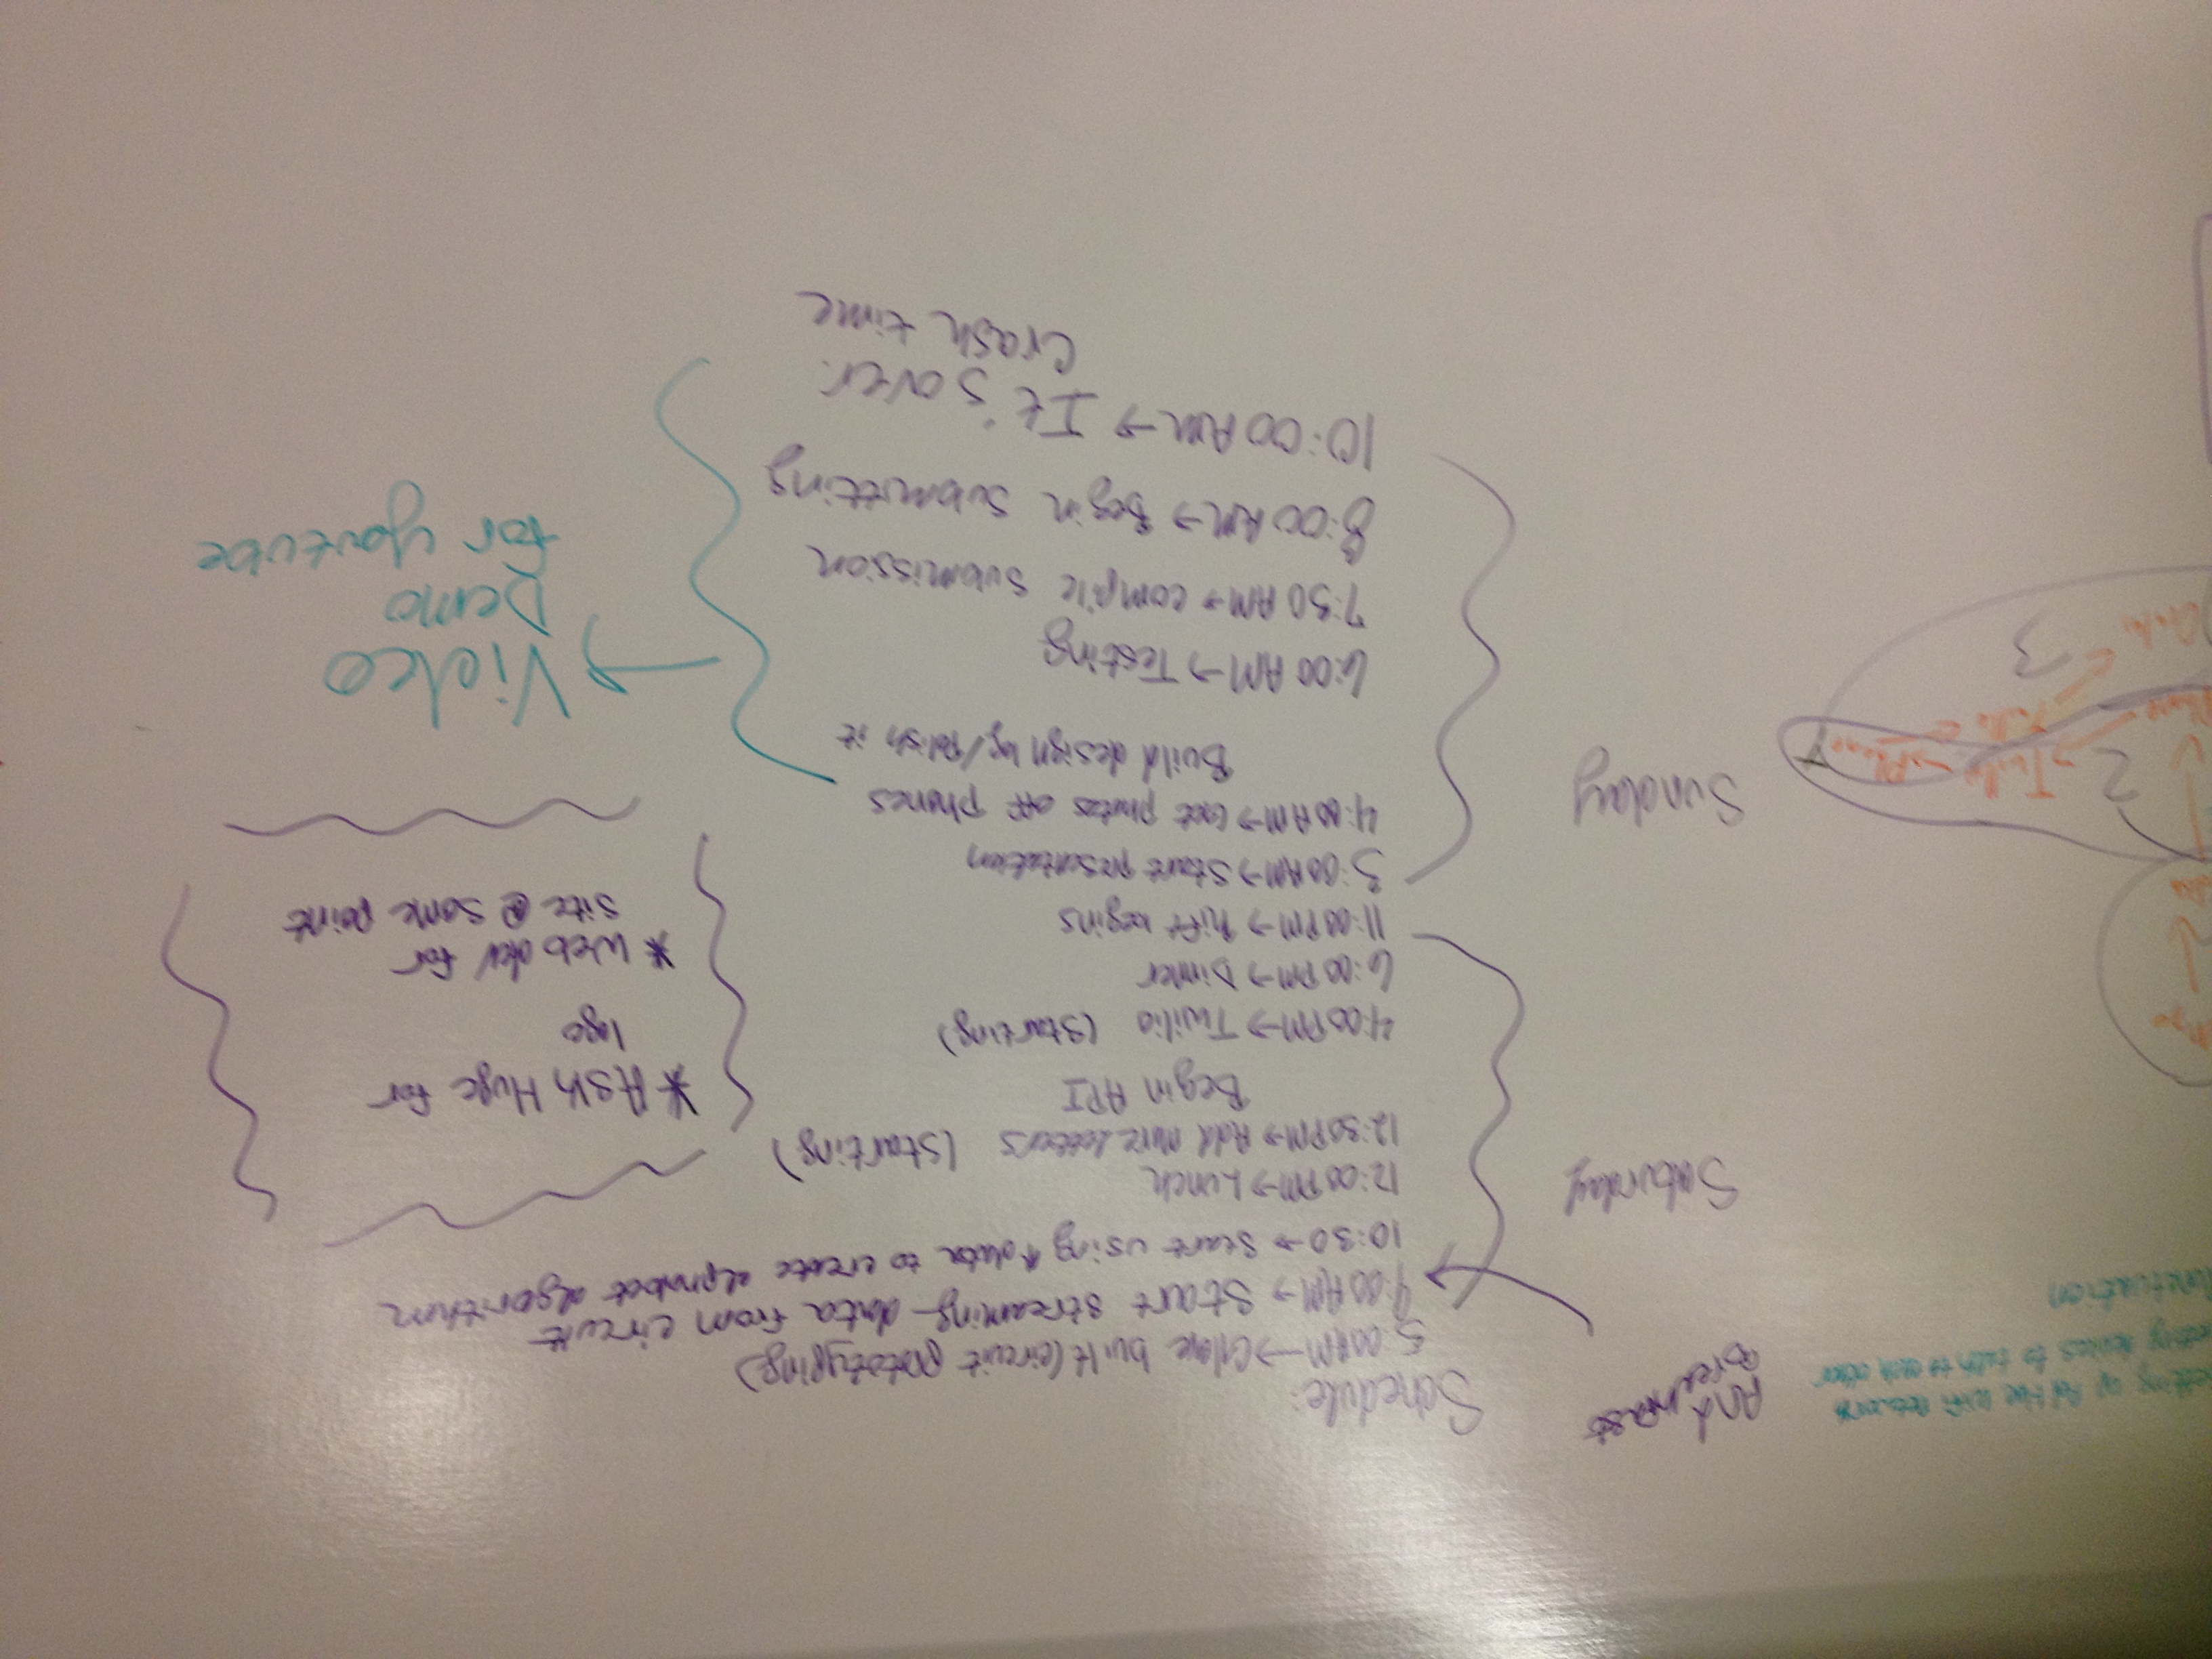 Schedule:
5:00AM → Glove built (circuit prototyping)
9:00AM → Start streaming data from circuit
10:30 → Start using ↑ data to create alphabet algorithm
12:00PM → Lunch
12:30PM → Add more letters (starting)
Begin API
4:00PM → Twilio (starting)
6:00PM → Dinner
11:00PM → Rift begins
3:00AM → Start presentation
4:00AM → Get photos off phones
Build design log/Polish it
6:00AM → Testing
7:30AM → compile submission
8:00AM → Begin Submitting
10:00AM → It's over.
Crash time
And
Breakfast
Saturday
Sunday
* Ask Huge for
logo
* Web dev for
site @ some point
Video
Demo
for youtube
up Ad Hoc wifi network
devices to talk to each other
2
3
Twilio → Phone